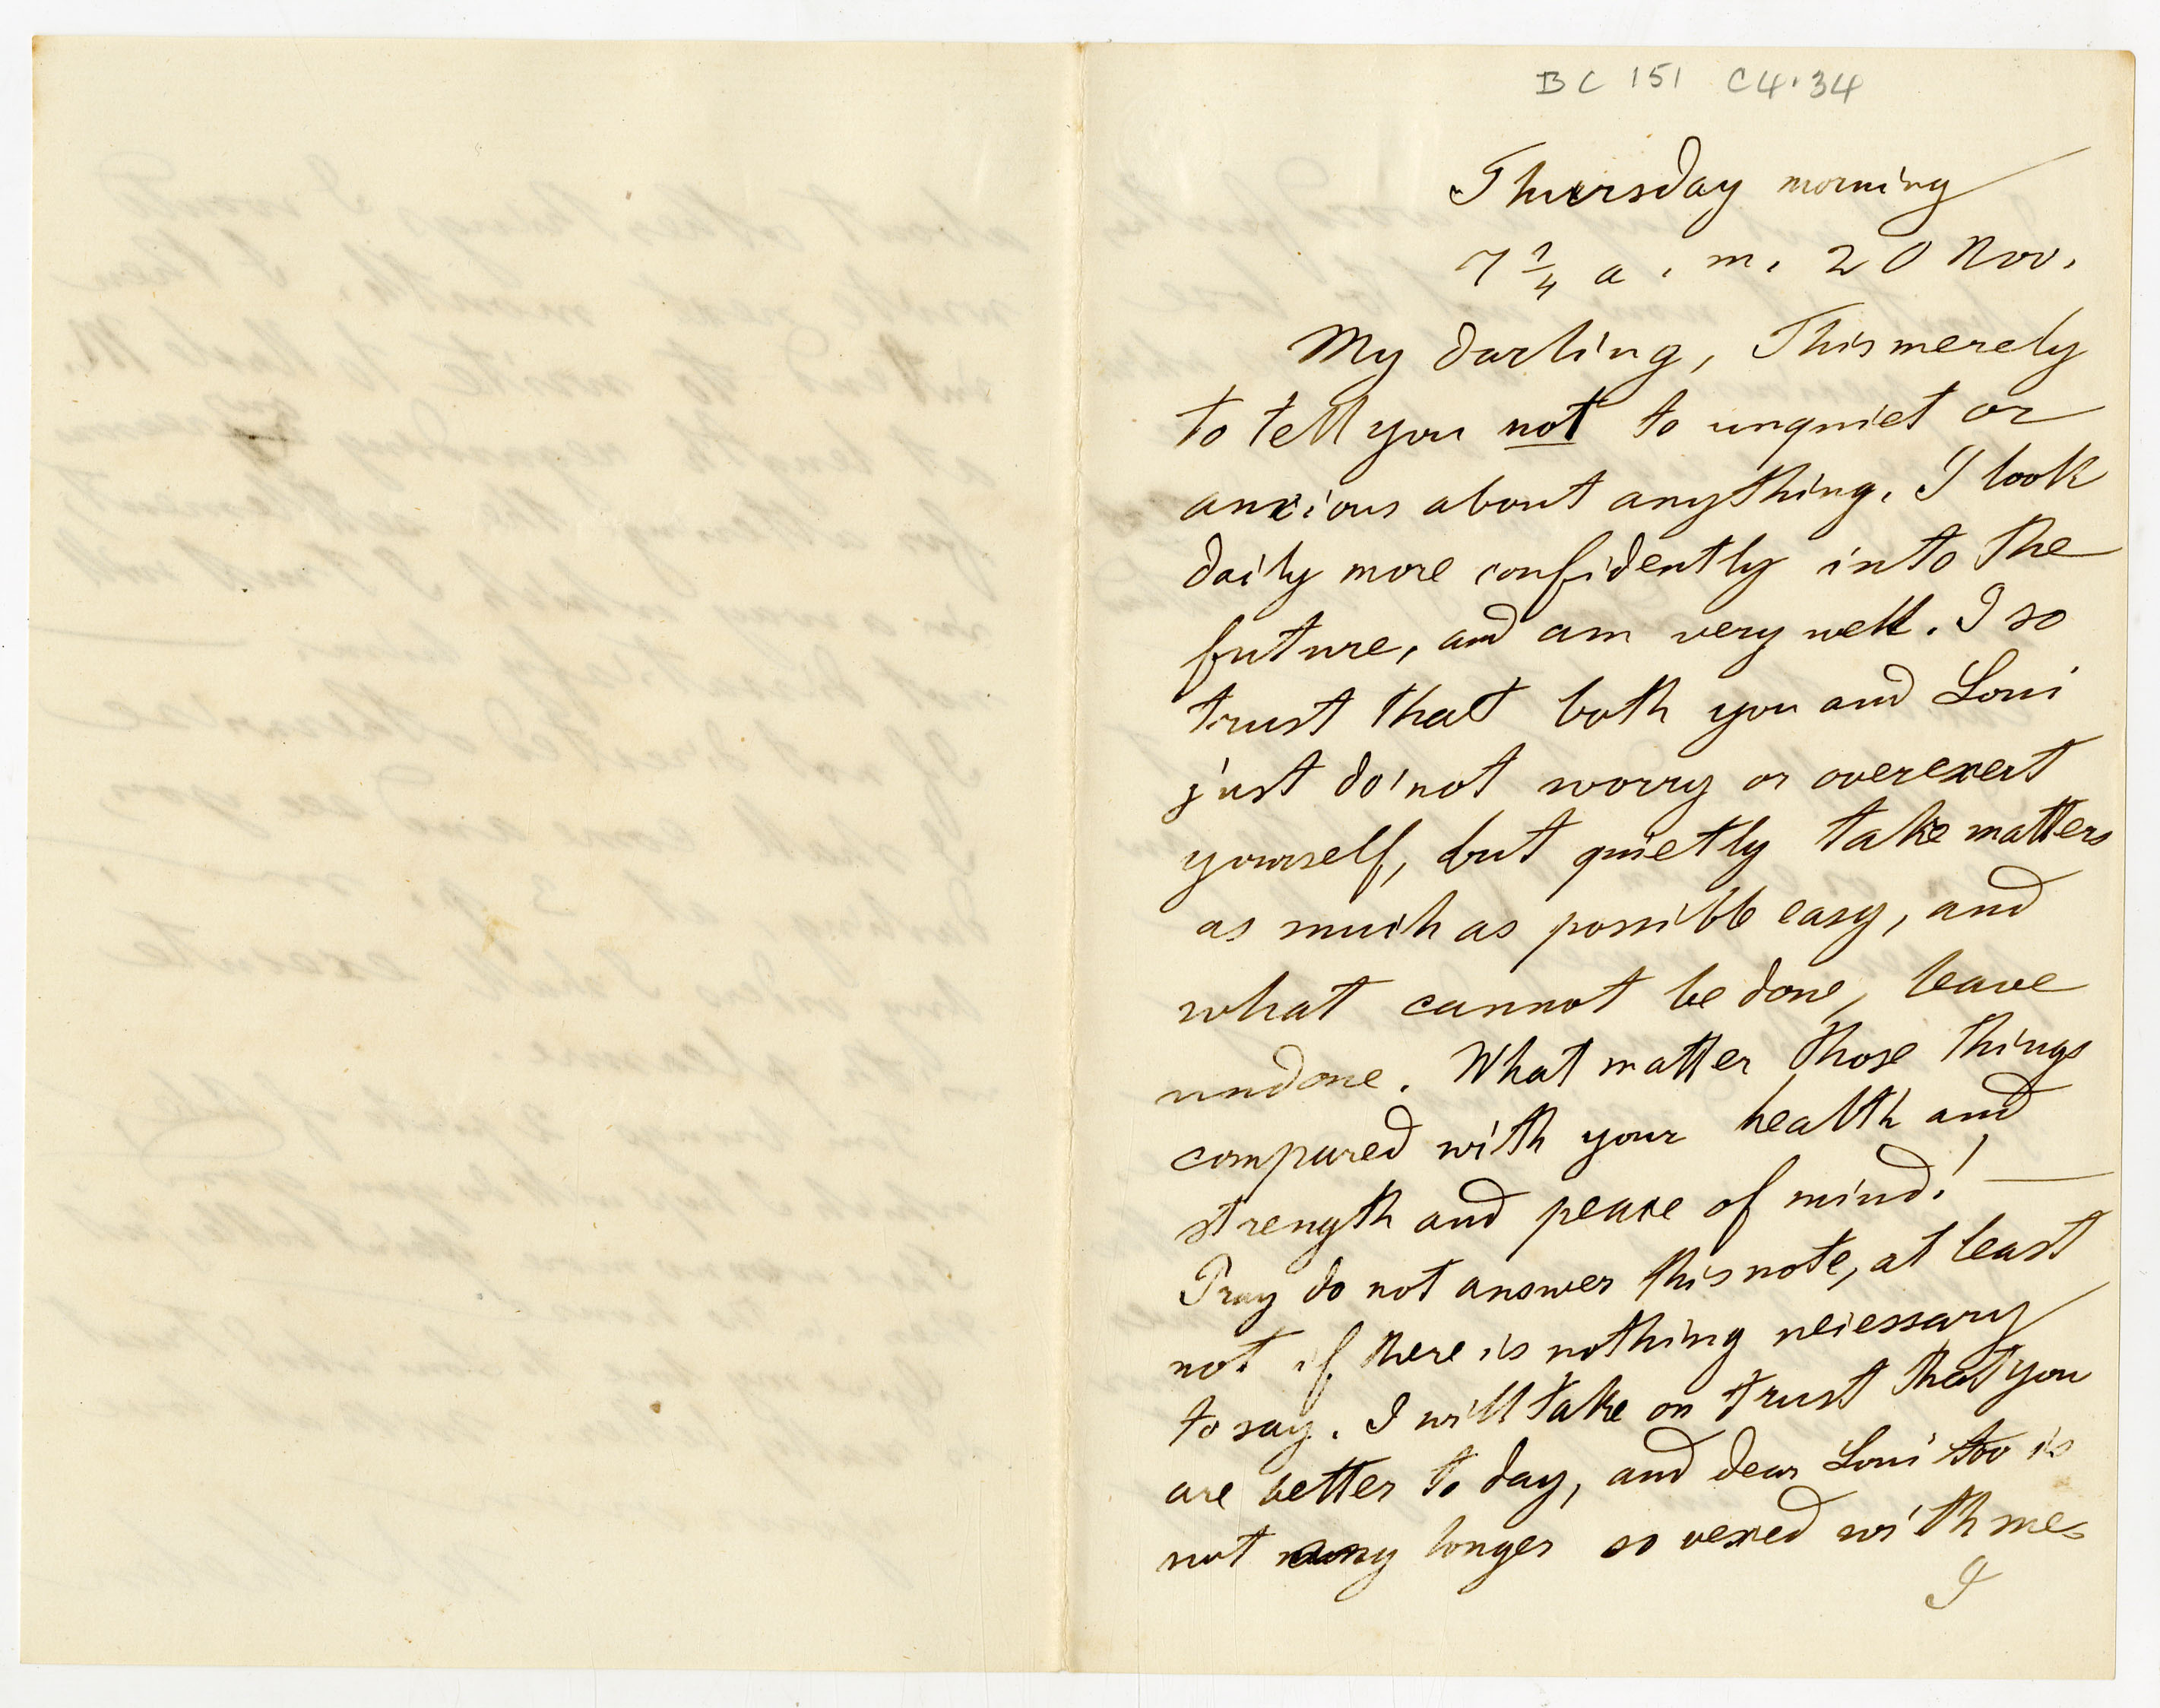 BC 151 C4.34
Thursday morning
7 1/4 a. m. 20 Nov.
My darling, This merely
to tell you not to unquiet or
anxious about anything. I look
daily more confidently into the
future, and am very well. I so
trust that both you and Loui
just do'not worry or overexert
yourself, but quietly take matters
as much as possible easy, and
what cannot be done, leave
undone. What matter those things
compared with your health and
strength and peace of mind! —
Pray do not answer this note, at least
not if there is nothing necessary
to say. I will take on trust that you
are better to day, and dear Loui too is
not any longer so vexed with me.
I